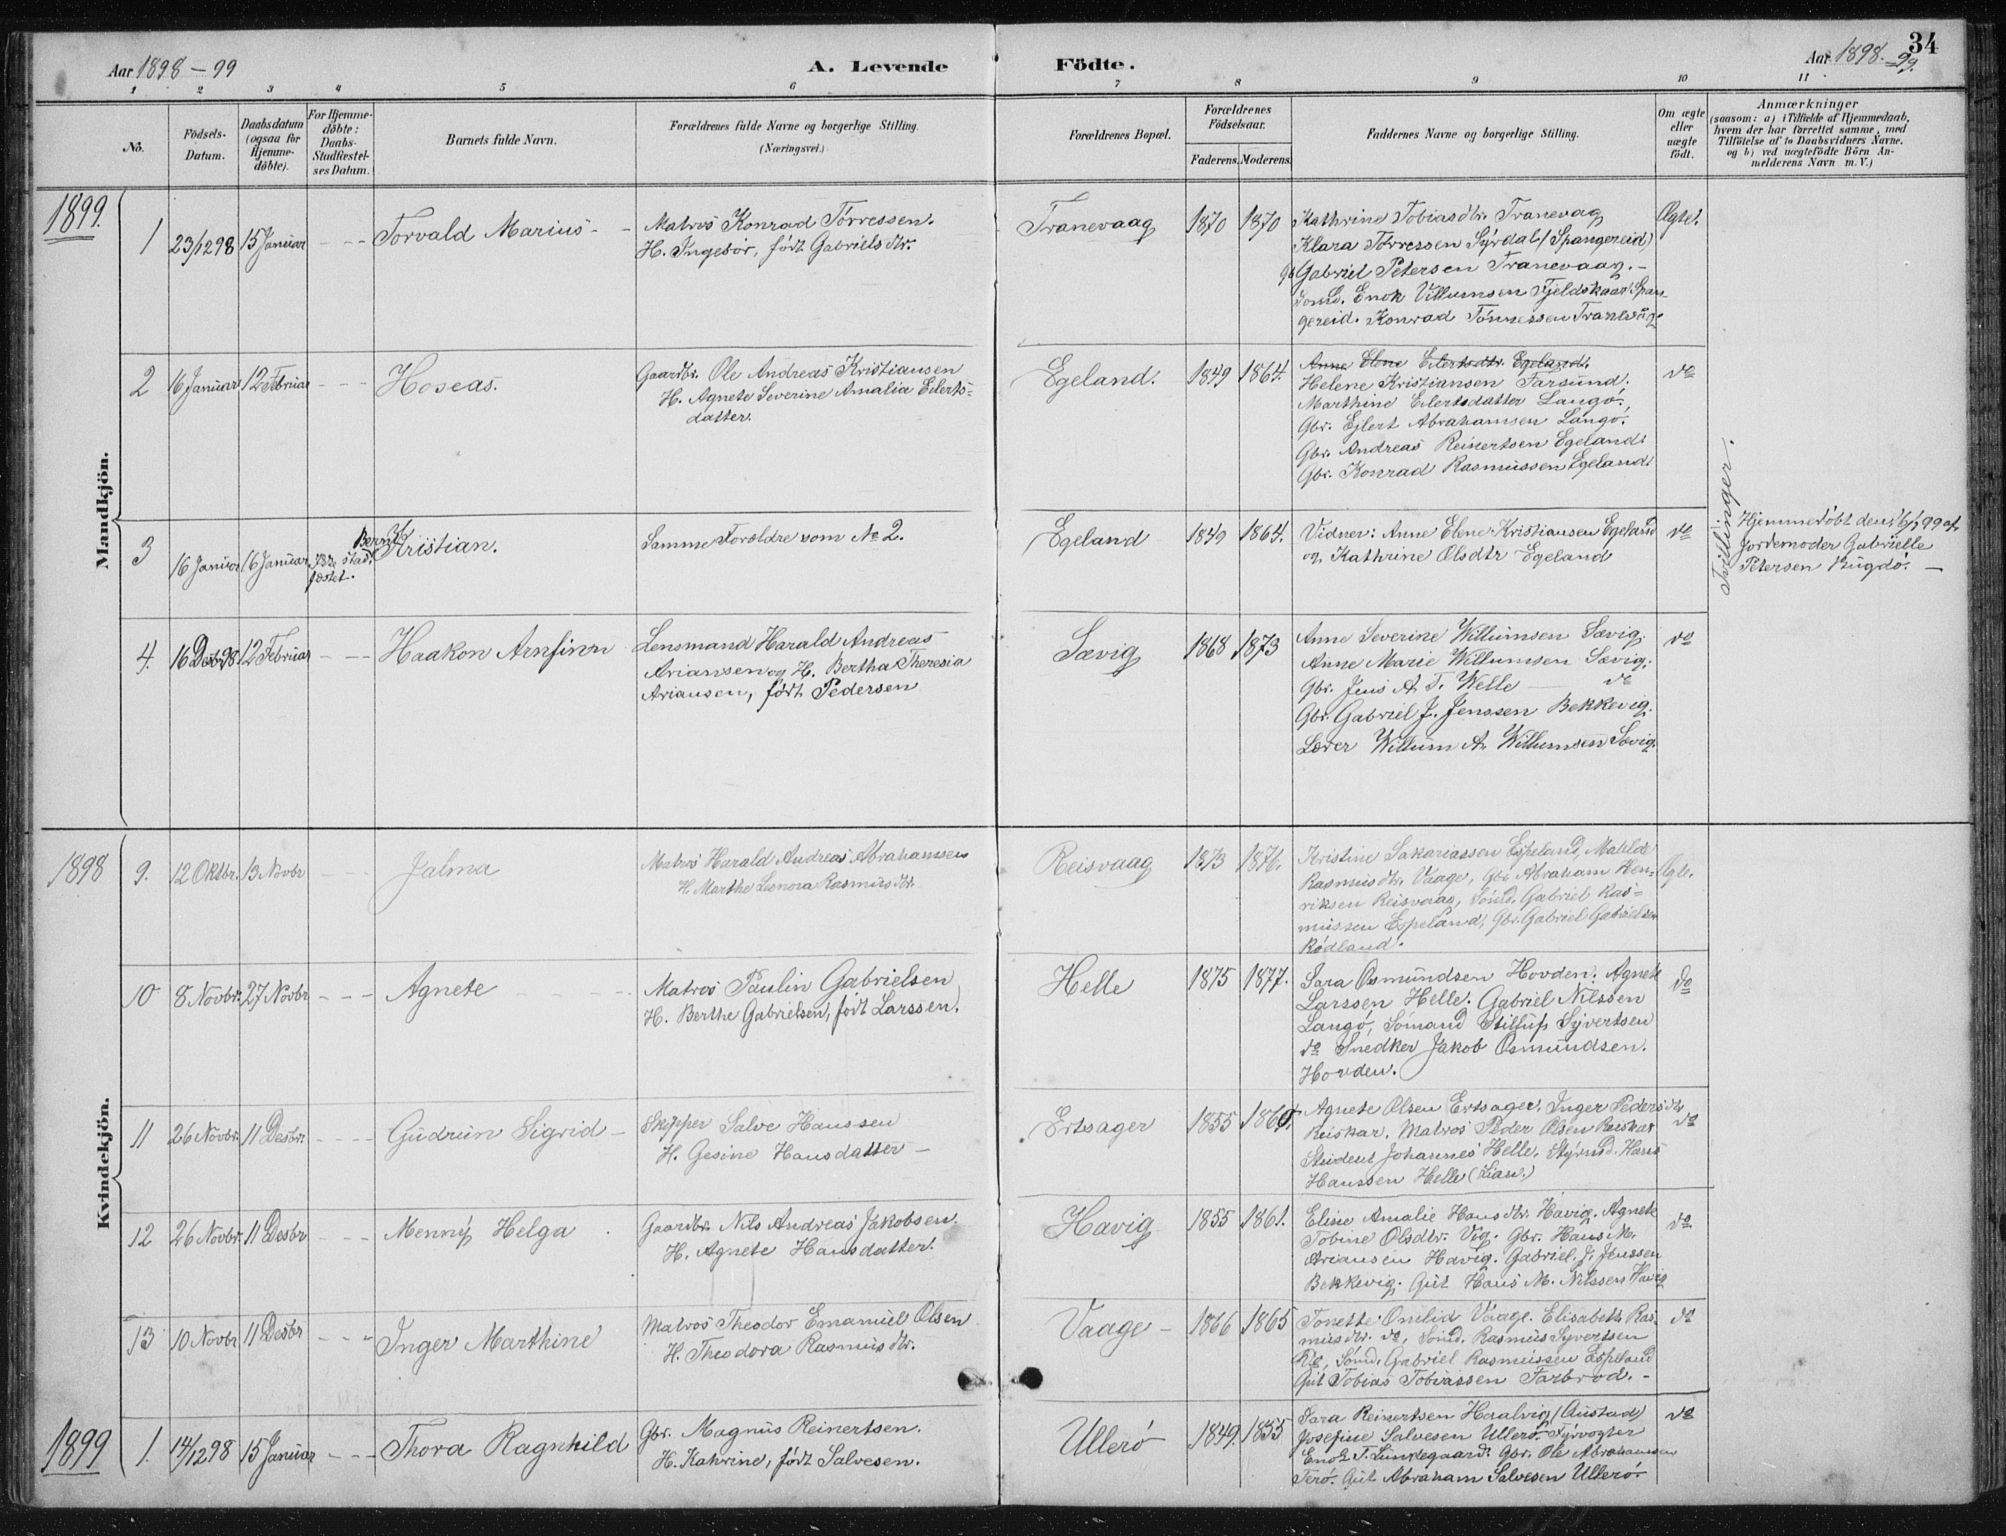 Aar 1898-99
A. Levende Födte.
Aar 1898-99.
34
1 2 3 4 5 6 7 8 9 10 11
No.
Födsels-
Datum.
Daabsdatum
(ogsaa for
Hjemme-
döbte).
For Hjemme-
döbte:
Daabs-
Stadfæstel-
ses Datum.
Barnets fulde Navn.
Forældrenes fulde Navne og borgerlige Stilling.
(Næringsvei.)
Forældrenes Bopæl.
Forældrenes
Födselsaar.
Faderens. Moderens.
Faddernes Navne og borgerlige Stilling.
Om ægte
eller
uægte
födt.
Anmærkninger
(saasom: a) i Tilfælde af Hjemmedaab,
hvem der har forrettet samme, med
Tilföielse af to Daabsvidners Navne.
og b) ved uægtefödte Börn An-
melderens Navn m. V.)
Mandkjön.
1899.
1 23/12 98 15 Januar - - - Torvald Marius -
Matros Konrad Törressen.
H. Ingebór, födt Gabriels dtr.
Tranevaag 1870 1870
Kathrine Tobiasdtr. Tranevag
Klara Törressen Syrdal (Spangereid)
Gabriel Petersen Tranevaag. -
Sömd. Enok Villumsen Fjeldskaar Span-
gereid. Konrad Tönnessen Tranevåg.
Ægte.
2 16 Januar 12 Februar - - - Hoseas.
Gaardbr. Ole Andreas Kristiansen
H. Agnete Severine Amalia Eilerts-
datter.
Egeland. 1849 1864.
Anne Elene Eilertsdtr. Egeland.
Helene Kristiansen Farsund.
Marthine Eilertsdatter Langö.
Gbr. Ejlert Abrahamsen Langö.
Gbr. Andreas Reinertsen Egeland.
Gbr. Konrad Rasmussen Egeland.
do
3 16 Januar 16 Januar stad-
fæstet. Kristian.
Samme Foroldre som No 2.
Egeland 1849 1864.
Vidner: Anne Elene Kristiansen Egeland
og Kathrine Olsdtr Egeland
do
Tvillinger.
Hjemmedöbt den 16/1 99 af
Jordemoder Gabrielle
Petersen Bugdö. -
4. 16 Desbr 98 12 Februar - - Haakon Arnfinn
Lensmand Harald Andreas
Arianssen og H. Bertha Theresia
Ariansen, födt Pedersen
Sævig 1868 1873
Anne Severine Willumsen Sævig.
Anne Marie Willumsen Sævig.
Gbr. Jens A. T. Welle - do
Gbr. Gabriel J. Jenssen Bekkevig.
Lærer Willum A. Willumsen Sævig.
do
Kvindekjön.
1898
9. 12 Oktbr. 13 Novbr - - - Jalma
Matros Harald Andreas Abrahamsen
H. Marthe Leonora Rasmus dtr.
Reisvaag 1873 1876.
Kristine Sakariassen Espeland, Matilde
Rasmus dtr. Vaage, Gbr. Abraham Hen-
riksen Reisvaag, Sömd. Gabriel Ras-
mussen Espeland, Gbr. Gabriel Gabrielsen
Rödland.
Ægte.
10 8 Novbr. 27 Novbr - - - Agnete
Matros Paulin Gabrielsen
H. Berthe Gabrielsen, födt Larssen.
Helle 1875 1877.
Sara Osmundsen Hovden. Agnete
Larssen Helle. Gabriel Nilssen
Langö, Sömand Stilluf Syvertsen
do Snedker Jakob Osmundsen.
Hovden.
do
11 26 Novbr. 11 Desbr. - - - Gudrun Sigrid -
Skipper Salve Hanssen
H. Gesine Hansdatter -
Ertsager 1855
Agnete Olsen Ertsager. Inger Peders dtr
Reiskar. Matros Peder Olsen Reiskar
Student Johannes Helle. Styrmd. Hans
Hanssen Helle (Lian.)
do
12 26 Novbr. 11 Desbr - - - Menny Helga
Gaardbr. Nils Andreas Jakobsen
H. Agnete Hansdatter.
Havig 1855 1861.
Elise Amalie Hansdtr. Havig. Agnete
Tobine Olsdtr. Vig. Gbr. Hans M.
Ariansen Havig. Gabriel J. Jenssen
Bekkevig. Gut Hans M. Nilssen Havig
do
13 10 Novbr 11 Desbr - - - Inger Marthine
Matros Theodor Emanuel Olsen
H. Theodora Rasmus dtr.
Vaage - 1866 1865
Tonette Omlid Vaage. Elisabeth Ras-
mus dtr. do, Sömd. Rasmus Syvertsen
do, Sömd. Gabriel Rasmussen Espeland
Gut Tobias Tobiassen Farbrod. -
do
1899
1. 14/12 98 15 Januar - - - Thora Ragnhild
Gbr. Magnus Reinertsen.
H. Kahrine, födt Salvesen.
Ullerö 1849. 1855
Sara Reinertsen Haalvig (Austad)
Josefine Salvesen Ullerö. Fyrvogter
Gbr. Ole Abrahamsen
Terö. Gut Abraham Salvesen Ullerö.
do